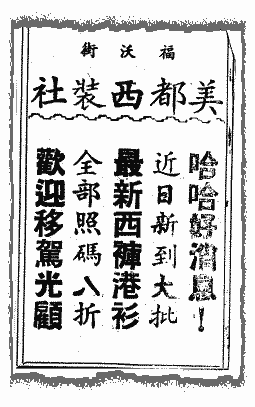 福沃街
美都西裝社
哈哈好消息！
近日新到大批
最新西褲港衫
全部照碼八折
歡迎移駕光顧